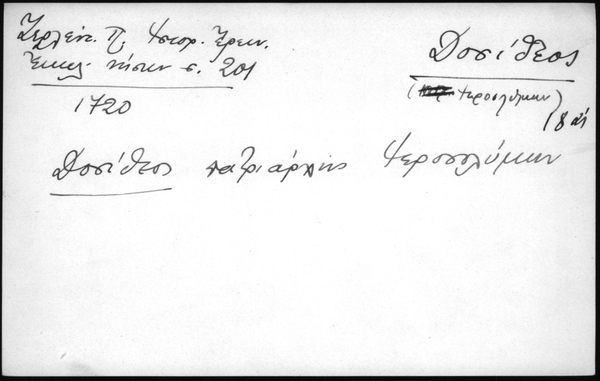 Ζερλέντ. Π. Ἱστορ. Ἔρευν.
Ἐκκλ. νήσων σ. 201
1720
Δοσίθεος
(Ἱεροσολύμων)
18 αἰ
Δοσίθεος πατριάρχης Ἱεροσολύμων